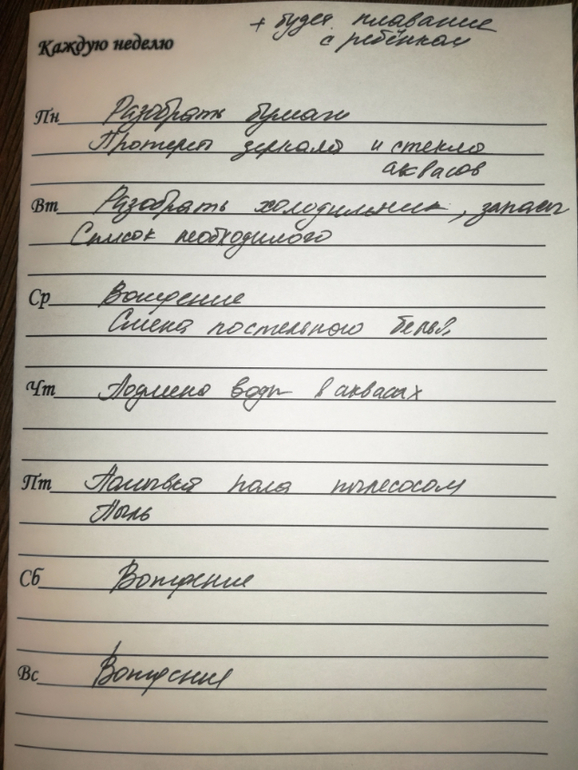 + будея плавание
с ребёнком
Каждую неделю
Пн Разобрать бумаги
Протереть зеркала и стекло
аквасов
Вт Разобрать холодильник, запасы
Список необходимого
Ср Вождение
Смена постельного белья
Чт Подмена воды в аквасах
Пт Помывка пола пылесосом
Пыль
Сб Вождение
Вс Вождение